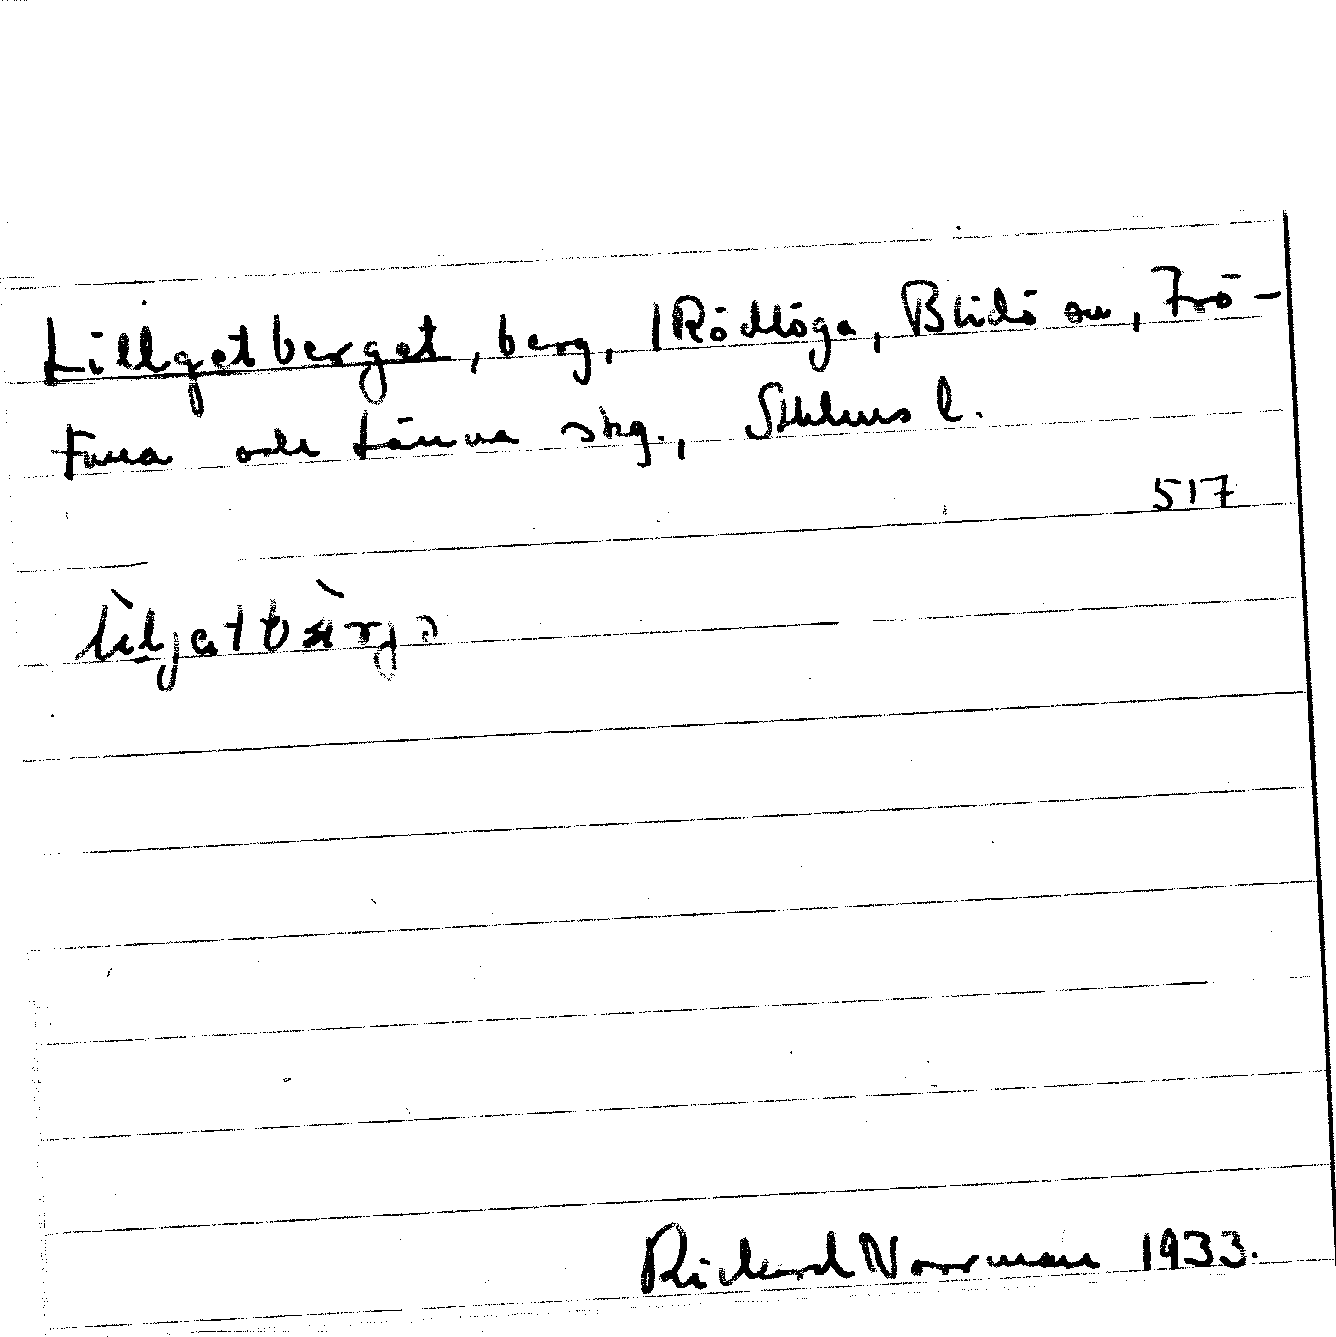 Lillgetberget, berg, Rödlöga, Blidö sn, Frö-
tuna och Länna skg., Sthlms l.
517
Rickard Norrman 1933.